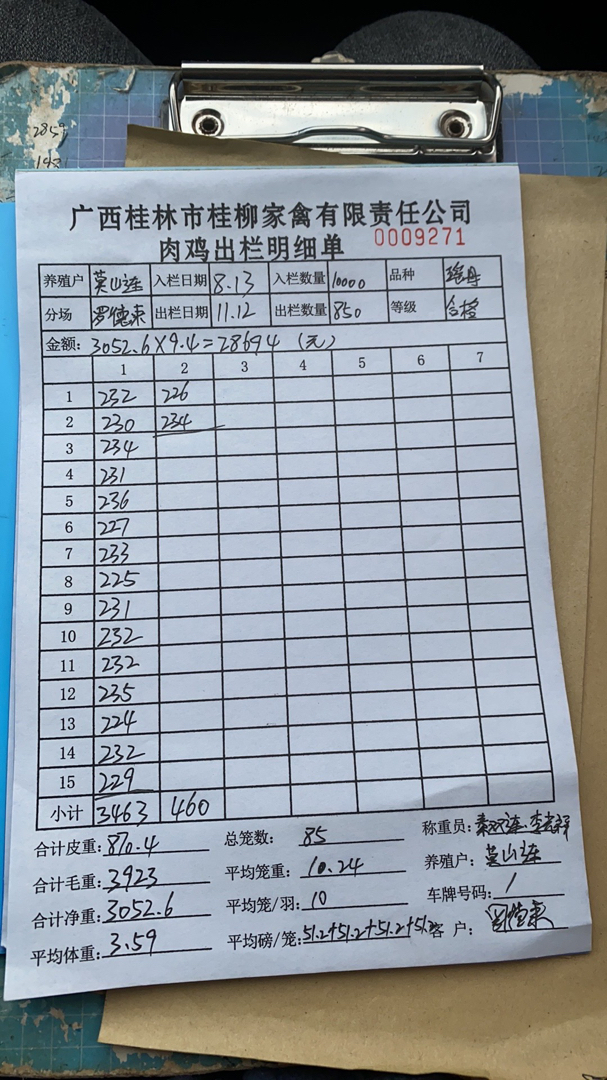 2857
广西桂林市桂柳家禽有限责任公司
肉鸡出栏明细单 0009271
养殖户 莫山连 入栏日期 8.13 入栏数量 10000 品种
分场 罗德来 出栏日期 11.12 出栏数量 850 等级 合格
金额: 3052.6×9.4=28694 (元)
1 2 3 4 5 6 7
1 232 226
2 230 234
3 234
4 231
5 236
6 227
7 233
8 225
9 231
10 232
11 232
12 235
13 224
14 232
15 229
小计 3463 460
合计皮重: 870.4 总笼数: 85 称重员:
合计毛重: 3923 平均笼重: 10.24 养殖户: 莫山连
合计净重: 3052.6 平均笼/羽: 10 车牌号码: /
平均体重: 3.59 平均磅/笼: 51.2+51.2+51.2+51.2 客 户: 罗德来